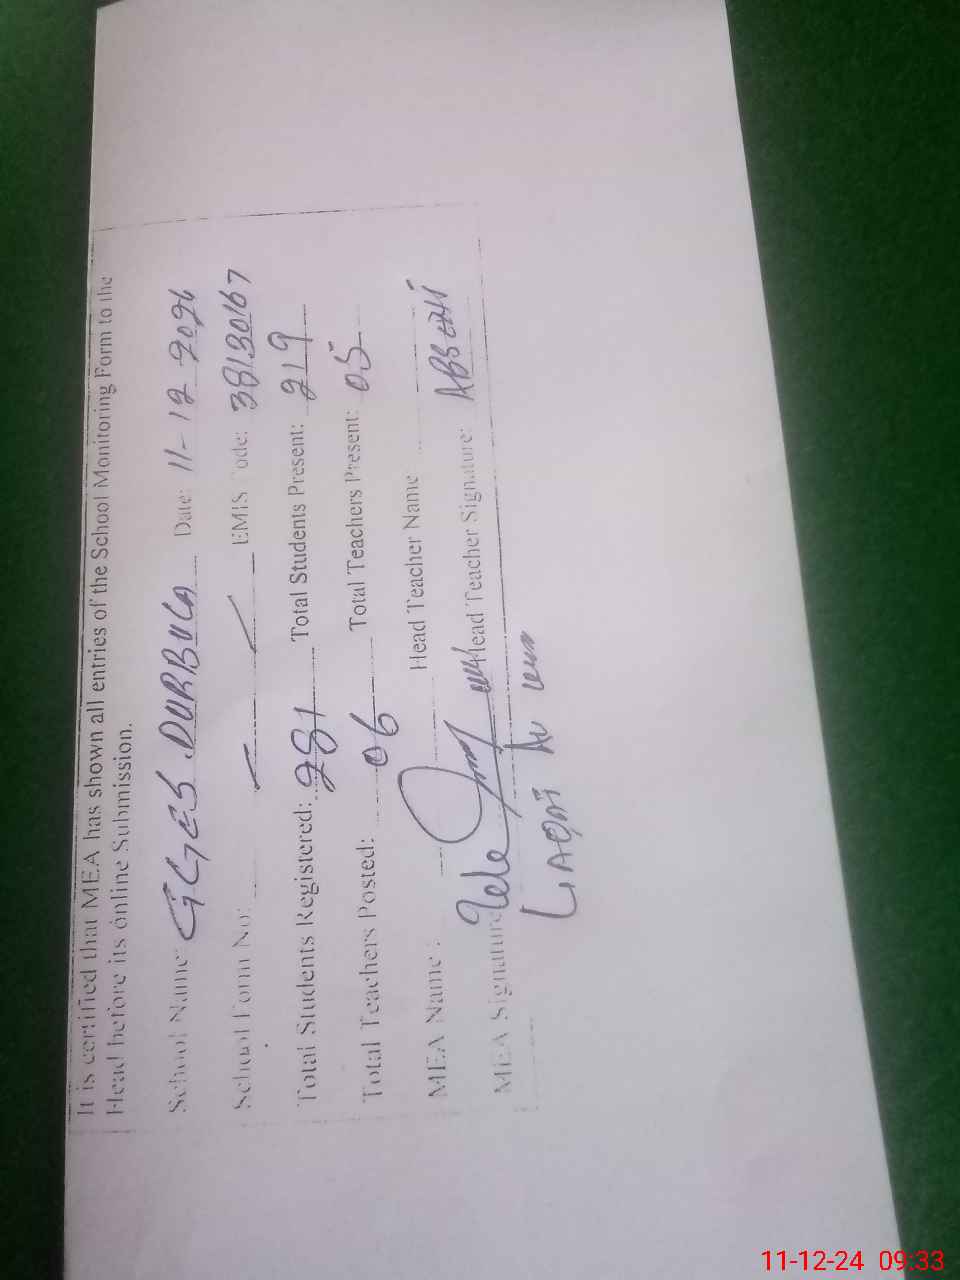 It is certified that MEA has shown all entries of the School Monitoring Form to the
Head before its online Submission.
School Name: GGES DURBULA Date: 11-12 2024
School Form No: EMIS Code: 38130167
Total Students Registered: 281 Total Students Present: 219
Total Teachers Posted: 06 Total Teachers Present: 05
MEA Name: Head Teacher Name
MEA Signature Head Teacher Signature:
11-12-24 09:33